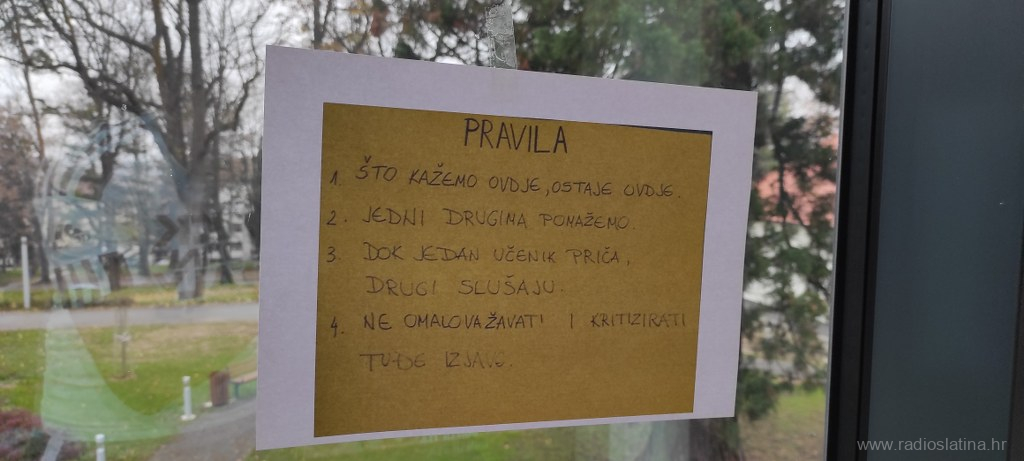 PRAVILA
1. ŠTO KAŽEMO OVDJE, OSTAJE OVDJE.
2. JEDNI DRUGIMA POMAŽEMO.
3. DOK JEDAN UČENIK PRIČA,
DRUGI SLUŠAJU.
4. NE OMALOVAŽAVATI I KRITIZIRATI
TUĐE IZJAVE.
www.radioslatina.hr